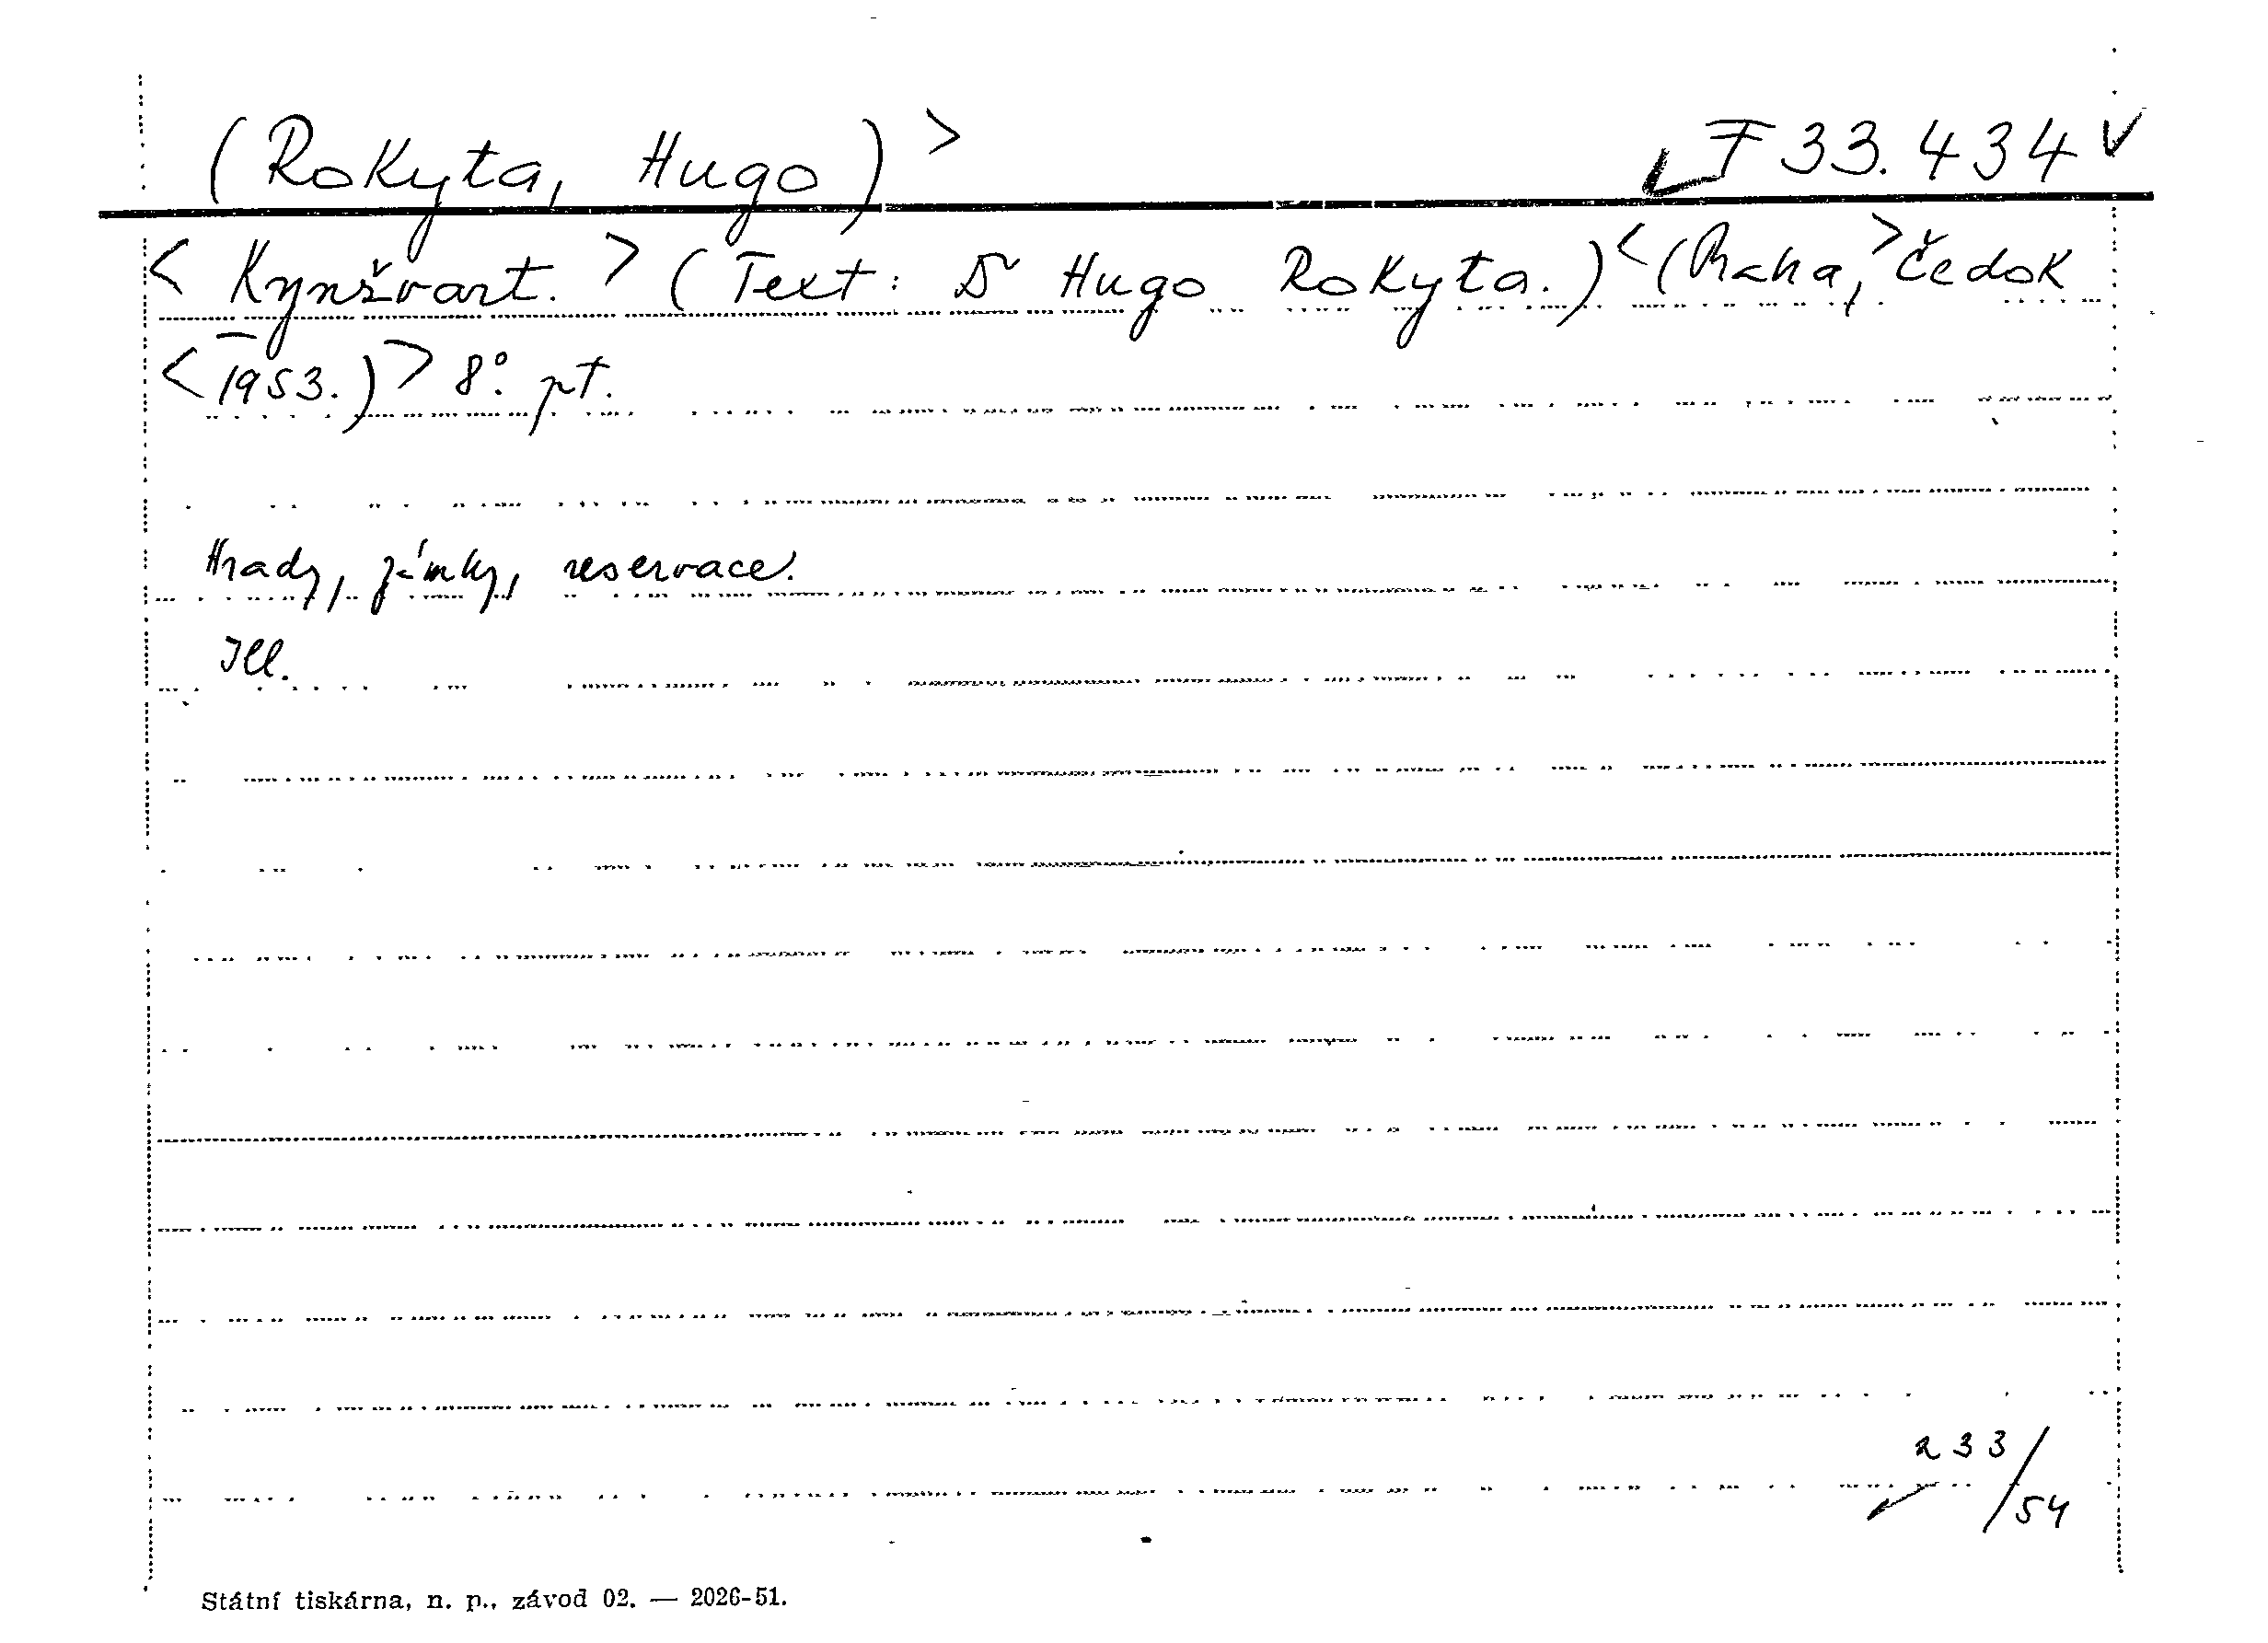 (Rokyta, Hugo) > F 33.434
< Kynžvart. > (Text: Dr Hugo Rokyta.) < (Praha, > Čedok
< 1953.) > 8°. pt.
Hrady, zámky, reservace.
Ill.
233/54
Státní tiskárna, n. p., závod 02. — 2026-51.